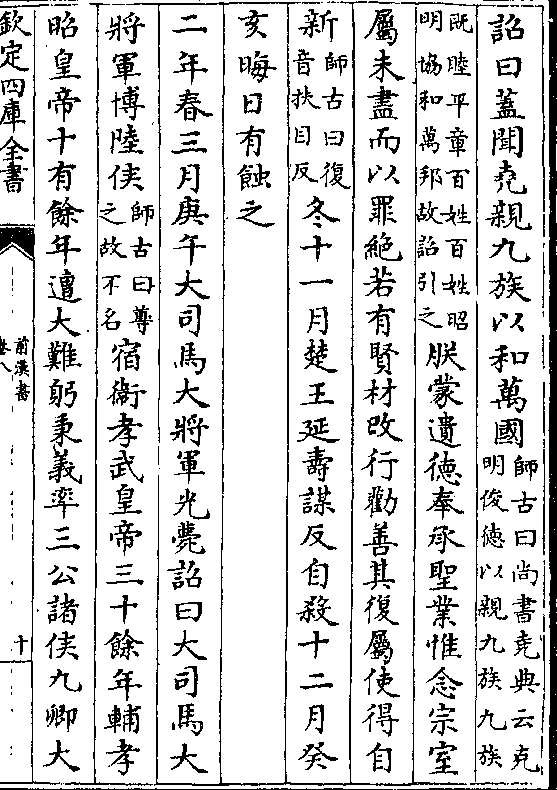 詔曰蓋聞堯親九族以和萬國師古曰尚書堯典云克明俊徳以親九族九族
既睦平章百姓百姓昭明協和萬邦故詔引之朕蒙遺徳奉承聖業惟念宗室
屬未盡而以罪絶若有賢材改行勸善其復屬使得自
新師古曰復音扶目反冬十一月楚王延壽謀反自殺十二月癸
亥晦日有蝕之
二年春三月庚午大司馬大將軍光薨詔曰大司馬大
將軍博陸侯師古曰尊之故不名宿衞孝武皇帝三十餘年輔孝
昭皇帝十有餘年遭大難躬秉義率三公諸侯九卿大
欽定四庫全書
前漢書
卷八
十